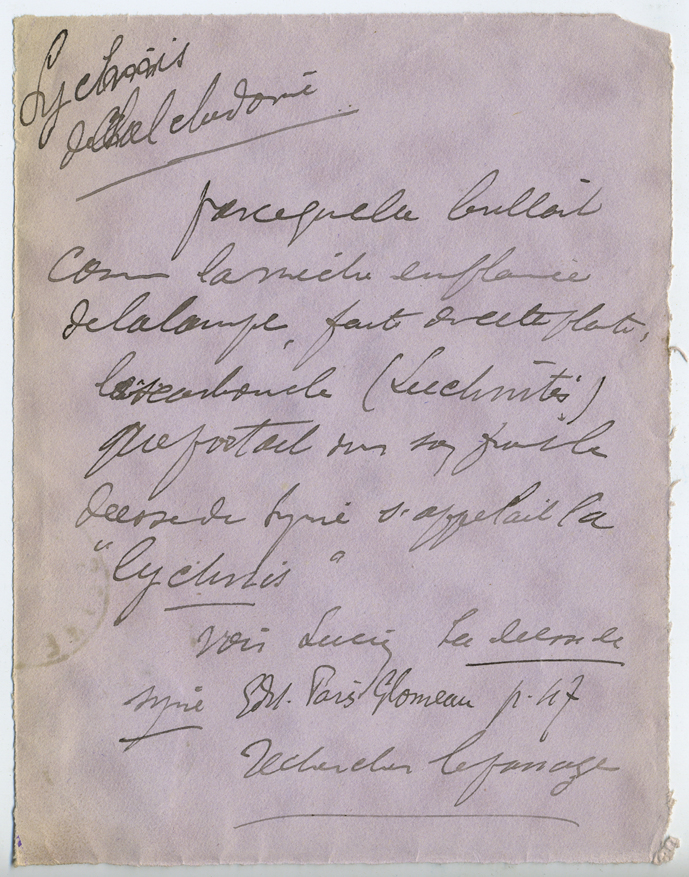 Lychnis
de Chalcédoine
parce que lu brillait
comme la mèche enflammée
de la lampe, faite de cette plante,
l'escarboucle (Luchnitès)
que portait sur son front la
déesse de Syrie s'appelait la
"lychnis"
Voir Lucien La déesse de
Syrie Edit. Paris Glomeau p. 47
Rechercher le passage